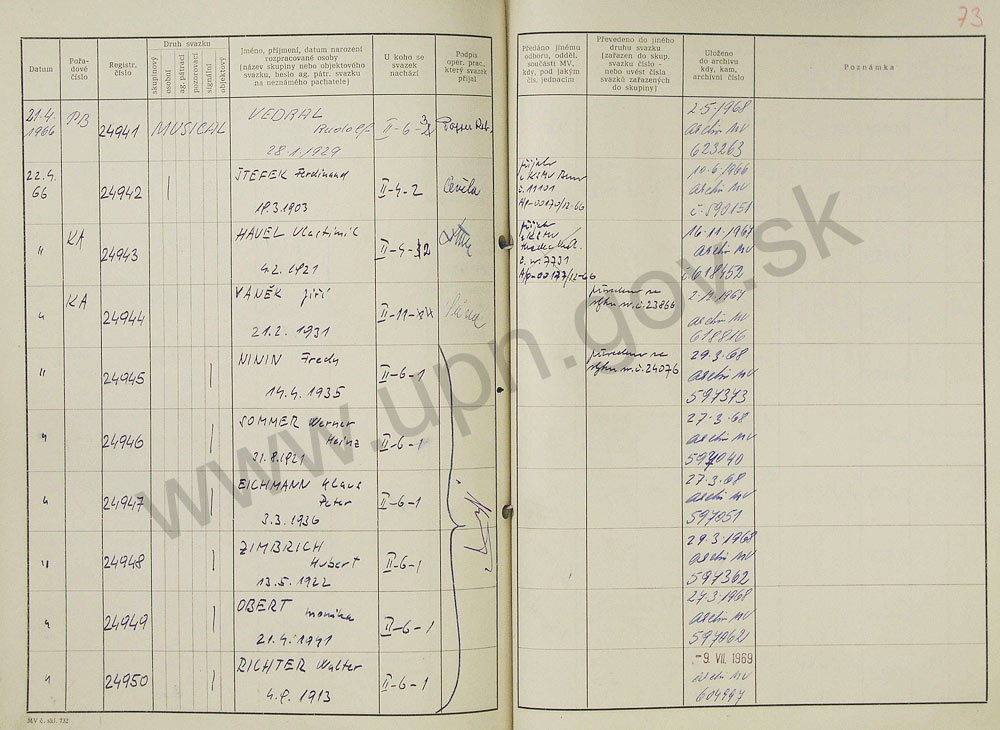 73
Datum
Pořa-
dové
číslo
Registr.
číslo
Druh svazku
skupinový
osobní
ag. pátrací
pozorovací
signální
objektový
Jméno, příjmení, datum narození
rozpracované osoby
(název skupiny nebo objektového
svazku, heslo ag. pátr. svazku
na neznámého pachatele)
U koho se
svazek
nachází
Podpis
oper. prac.,
který svazek
přijal
Předáno jinému
odboru, odděl.
součásti MV,
kdy, pod jakým
čís. jednacím
Převedeno do jiného
druhu svazku
(zařazen do skup.
svazku číslo -
nebo uvést čísla
svazků zařazených
do skupiny)
Uloženo
do archivu
kdy, kam,
archivní číslo
Poznámka
21.4.
1966
PB
24941
MUSICAL
VEDRAL
Rudolf
28.1.1929
II-6-3
2.5.1968
archiv MV
623263
22.4.
66
24942
ŠTEFEK Ferdinand
18.3.1903
II-4-2
č. 11101
Ap-00170/12-66
10.6.1966
archiv MV
č. 590151
"
KA
24943
HAVEL Vlastimil
4.2.1921
II-4-2
č. n. 7731
Ap-00177/12-66
16.11.1967
archiv MV
č. 618452
"
KA
24944
VANĚK Jiří
21.2.1931
II-11-
převedeno ve
n.č. 23866
archiv MV
618816
"
24945
NININ Fredy
14.4.1935
II-6-1
převedeno ve
n.č. 24076
29.3.68
archiv MV
597373
"
24946
SOMMER Werner
Heinz
21.8.1921
II-6-1
27.3.68
archiv MV
597040
"
24947
EICHMANN Klaus
Peter
3.3.1936
II-6-1
27.3.68
archiv MV
597051
"
24948
ZIMBRICH
Hubert
13.5.1922
II-6-1
29.3.1968
archiv MV
597362
"
24949
OBERT Monika
21.4.1941
II-6-1
27.3.1968
archiv MV
597062
"
24950
RICHTER Walter
4.9.1913
II-6-1
-9. VII. 1969
archiv MV
604997
MV č. skl. 732
www.upn.gov.sk